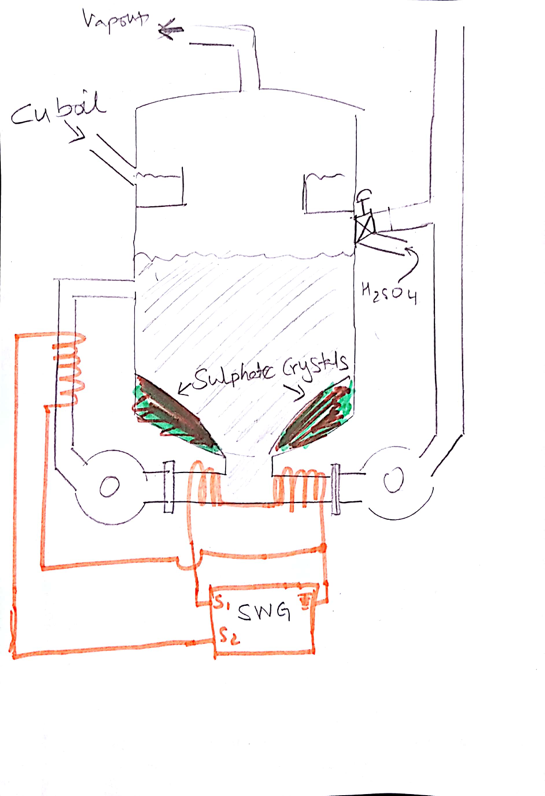 Vapours
Cu boil
H2SO4
Sulphate Crystals
S1
SWG
S2